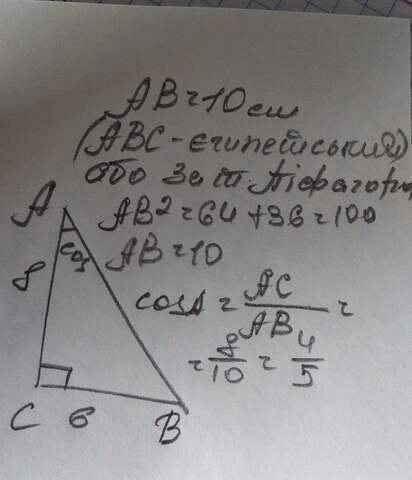 AB = 10 см
(ABC - єгипетський)
або за т. Піфагора
AB² = 64 + 36 = 100
A
cos
AB = 10
8
cosA = AC/AB =
= 8/10 = 4/5
C 6 B